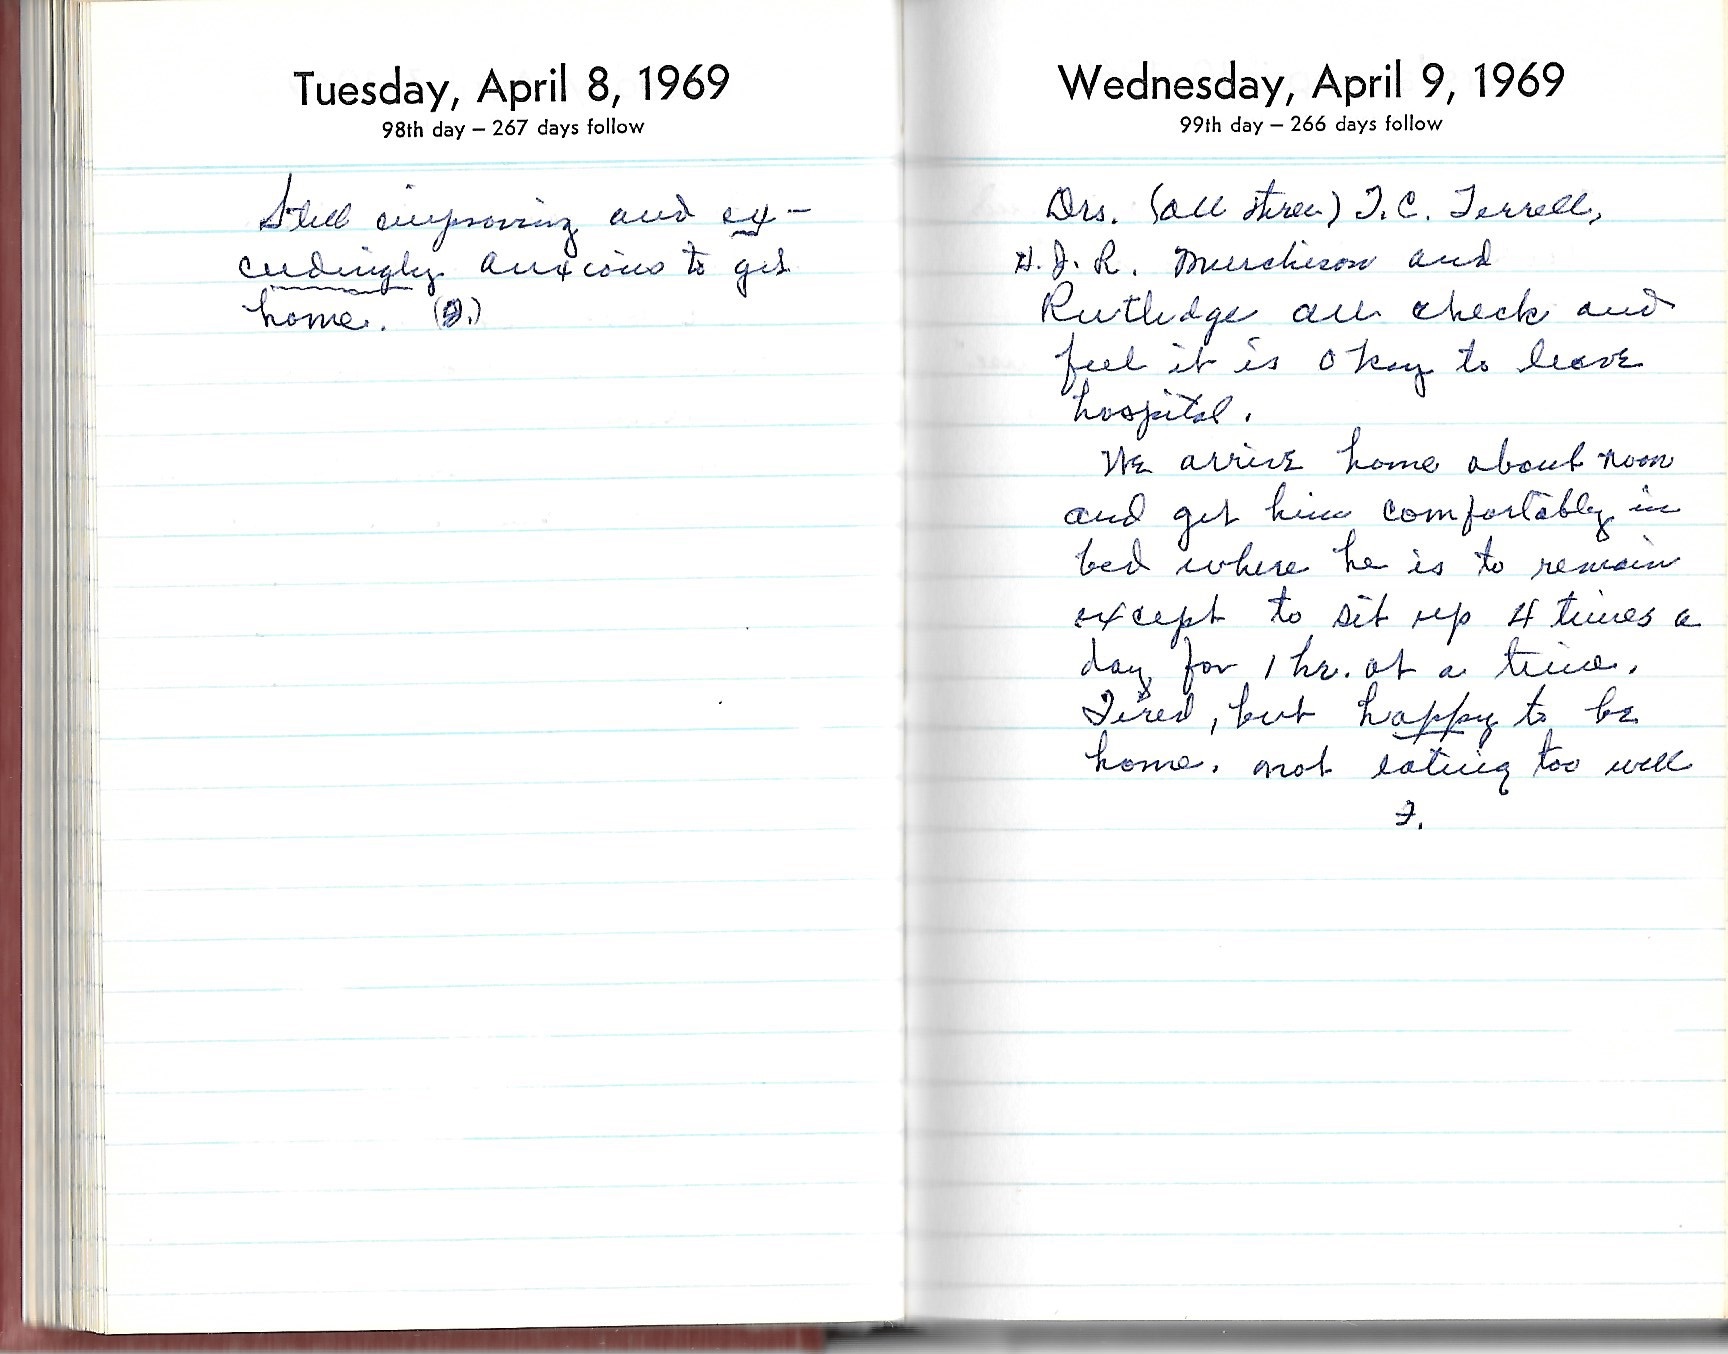 Tuesday, April 8, 1969
98th day – 267 days follow
Still improving and ex-
ceedingly anxious to get
home. (F.)
Wednesday, April 9, 1969
99th day – 266 days follow
Drs. (all three) T.C. Terrell,
H.J.R. Murchison and
Rutledge all check and
feel it is okay to leave
hospital.
We arrive home about noon
and get him comfortably in
bed where he is to remain
except to sit up 4 times a
day for 1 hr. at a time.
Tired, but happy to be
home. not eating too well
F.